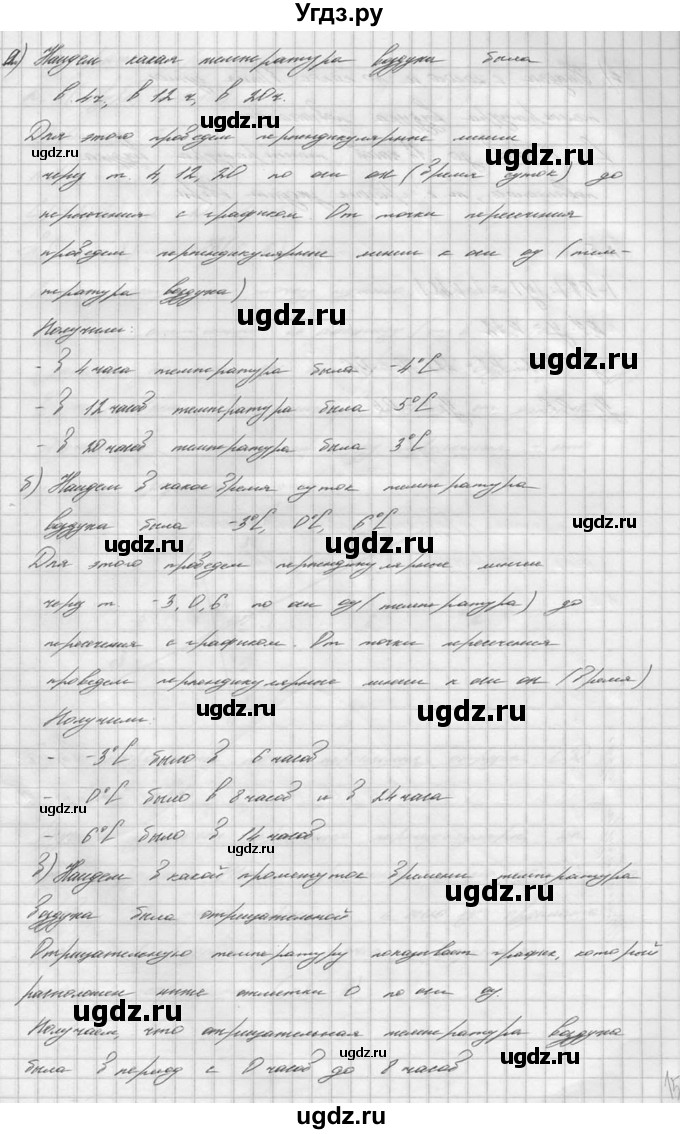 Угдз.ру
а) Найдем какая температура воздуха была
в 4ч, в 12 ч, в 20 ч.
ugdz.ru
Для этого проведем перпендикулярные линии
ugdz.ru
ugdz.ru
через т. 4, 12, 20 по оси ох (время суток) до
ugdz.ru
пересечения с графиком. От точки пересечения
проведем перпендикулярные линии к оси оу (тем-
пература воздуха)
ugdz.ru
Получили:
ugdz.ru
- в 4 часа температура была -4°С
- в 12 часов температура была 5°С
- в 20 часов температура была 3°С
ugdz.ru
ugdz.ru
б) Найдем в какое время суток температура
воздуха была -3°С, 0°С, 6°С
ugdz.ru
ugdz.ru
ugdz.ru
Для этого проведем перпендикулярные линии
через т. -3, 0, 6 по оси оу (температура) до
ugdz.ru
ugdz.ru
пересечения с графиком. От точки пересечения
проведем перпендикулярные линии к оси ох (время)
Получили:
ugdz.ru
ugdz.ru
- -3°С было в 6 часов
- 0°С было в 8 часов и в 24 часа
ugdz.ru
- 6°С было в 14 часов
ugdz.ru
в) Найдем в какой промежуток времени температура
ugdz.ru
воздуха была отрицательной
Отрицательную температуру показывает график, который
расположен ниже отметки 0 по оси оу.
ugdz.ru
Получаем, что отрицательная температура воздуха
ugdz.ru
была в период с 0 часов до 8 часов
15
ugdz.ru